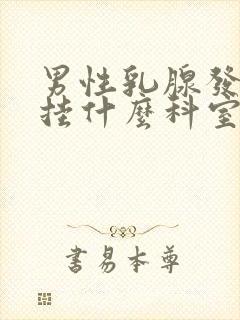 男性乳腺發
挂什麼科室
書易本尊